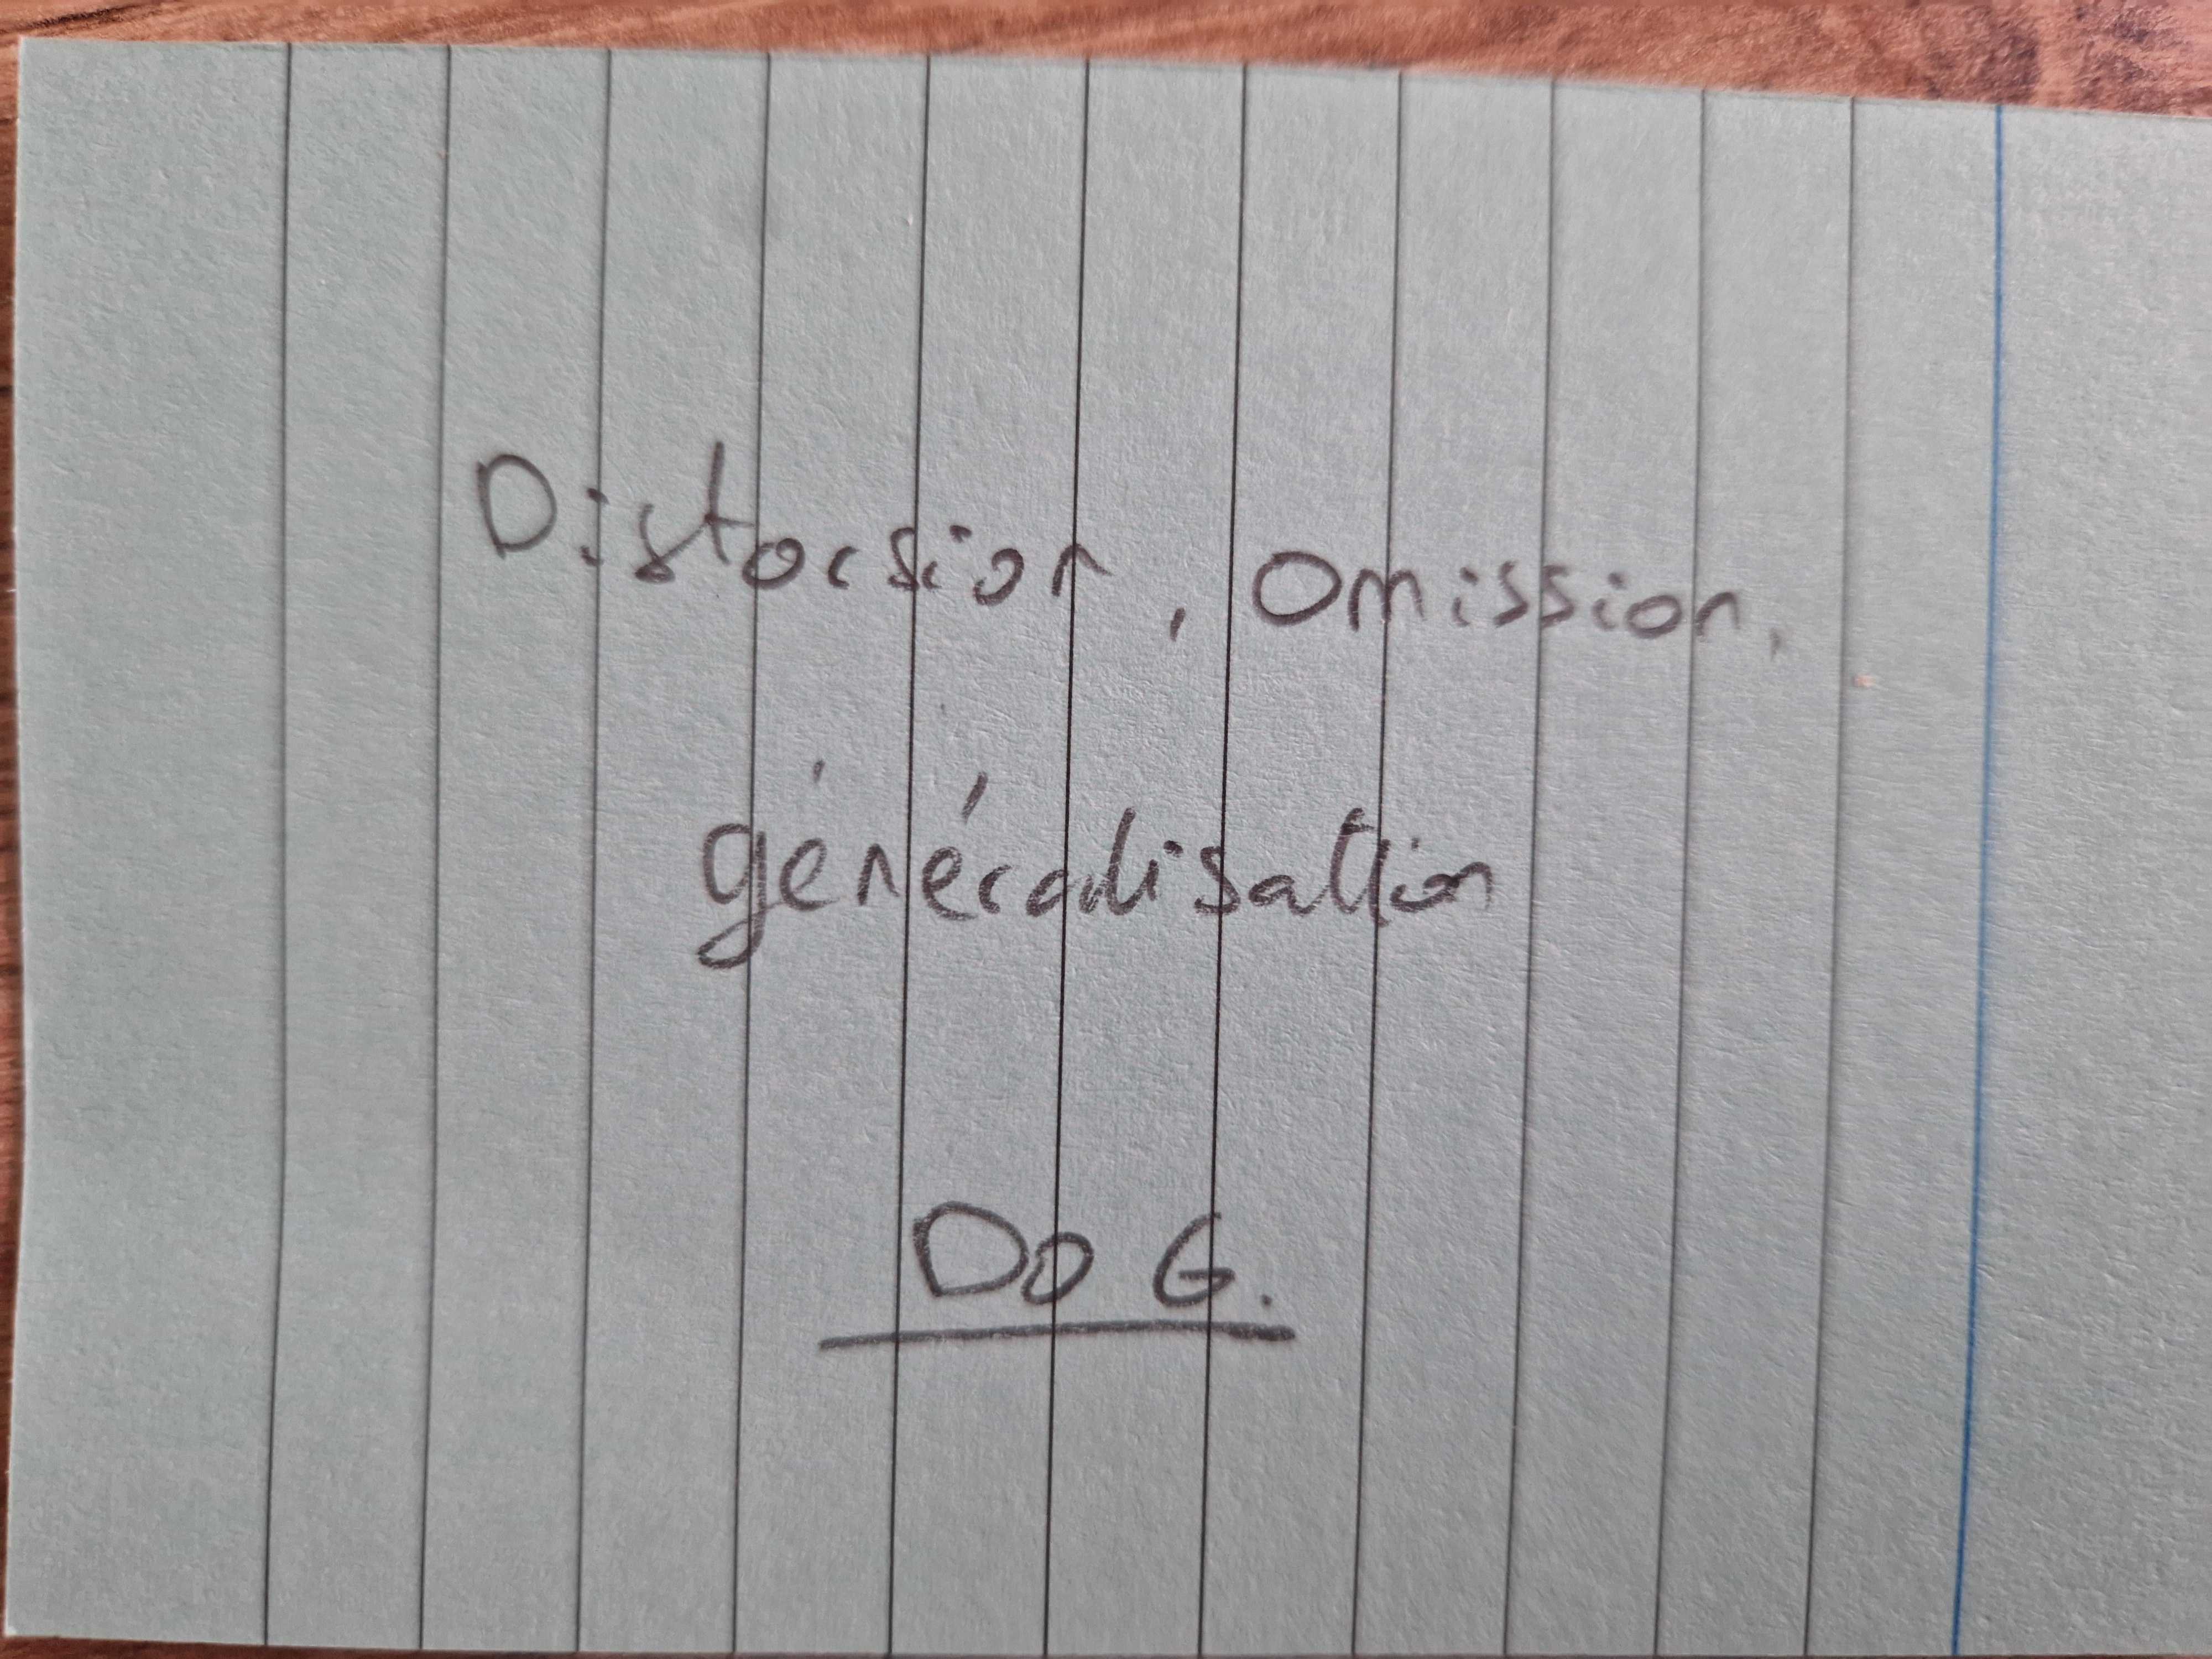 Distorsion, Omission,
généralisation
DO G.